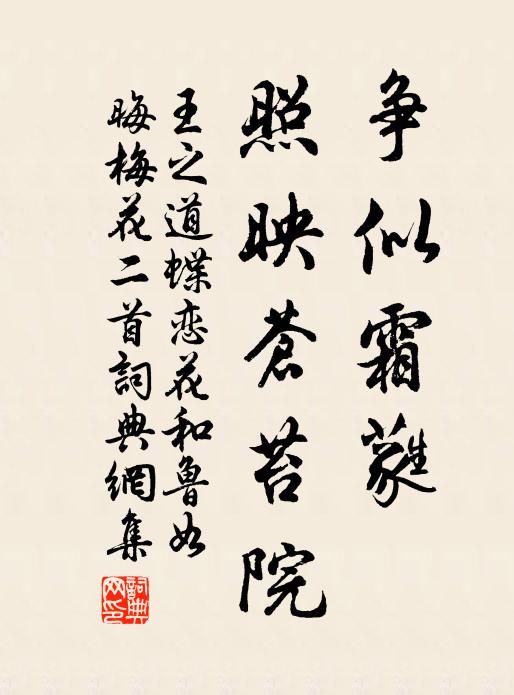 争似霜蕤
照映蒼苔院
王之道蝶恋花和魯如
晦梅花二首詞典網集
詞典网印